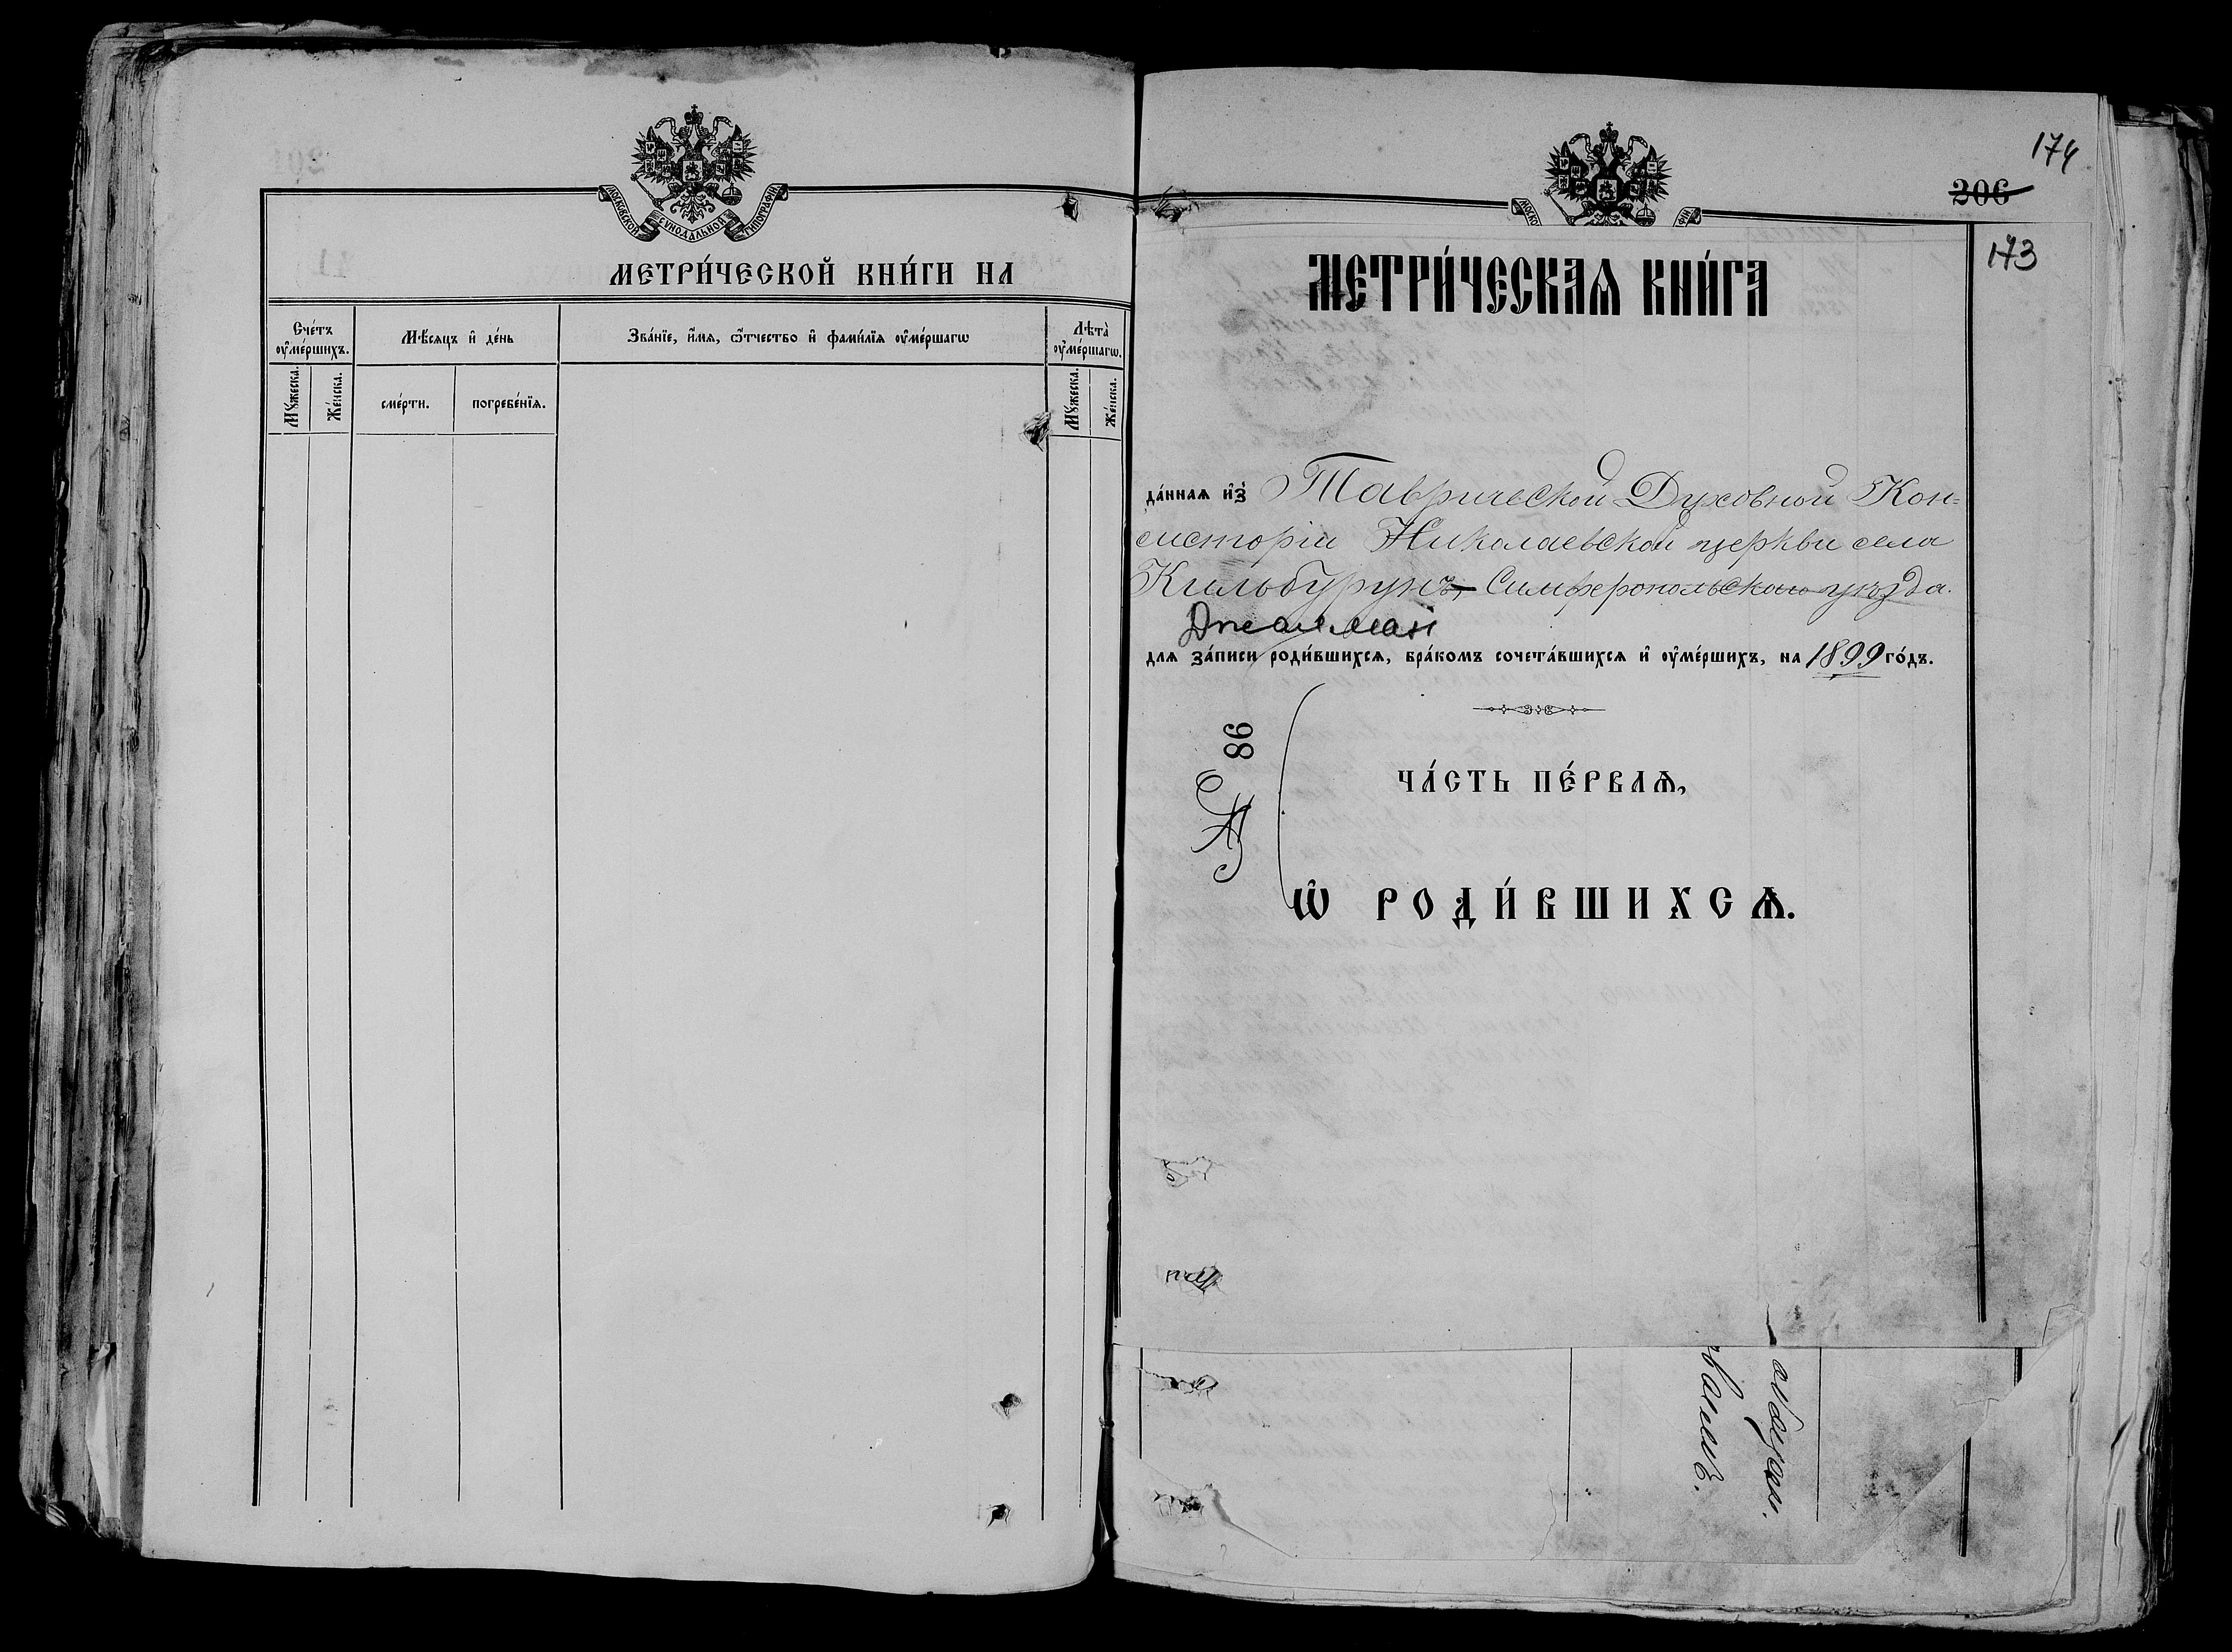 МОСКОВСКОЙ СѴНОДАЛЬНОЙ ТИПОГРАФІИ
МЕТРИ́ЧЕСКОЙ КНИ́ГИ НА
Сче́тъ оу҆ме́ршихъ.
Мѣ́сѧцъ и҆ де́нь
Зва́нїе, и҆́мѧ, ѻ҆́тчество и҆ фами́лїѧ оу҆ме́ршагѡ
Лѣ́та оу҆ме́ршагѡ.
Мꙋ́жеска.
Же́нска.
сме́рти.
погребе́нїѧ.
Мꙋ́жеска.
Же́нска.
174
206
173
МЕТРИ́ЧЕСКАѦ КНИ́ГА
да́ннаѧ и҆з̾ Таврической Духовной Кон=
систоріи Николаевской церкви села
Кильбурунъ, Симферопольскаго уѣзда.
для за́писи роди́вшихсѧ, бра́комъ сочета́вшихсѧ и҆ оу҆ме́ршихъ, на 1899 го́дъ.
98
ЧА́СТЬ ПЕ́РВАѦ,
Ѡ҆ РОДИ́ВШИХСѦ.